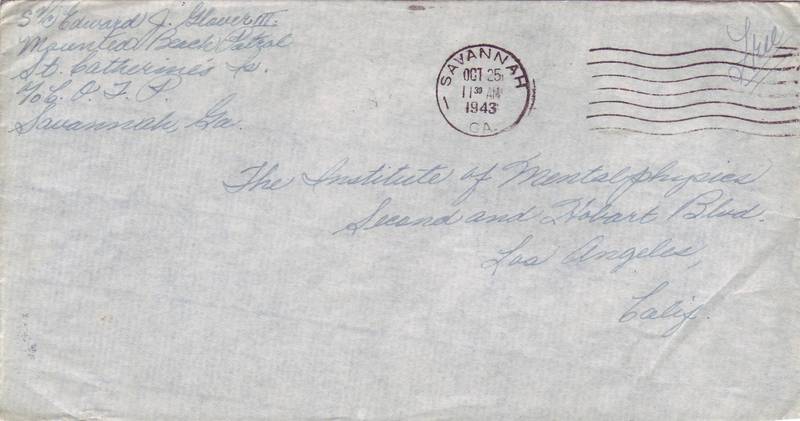 S 1/c Edward J. Glover III.
Mounted Beach Patrol
St. Catherine's Is.
% C. O. T. P.
Savannah, Ga.
SAVANNAH
OCT 25
11 30 AM
1943
GA.
Free
The Institute of Mentalphysics
Second and Hobart Blvd.
Los Angeles,
Calif.